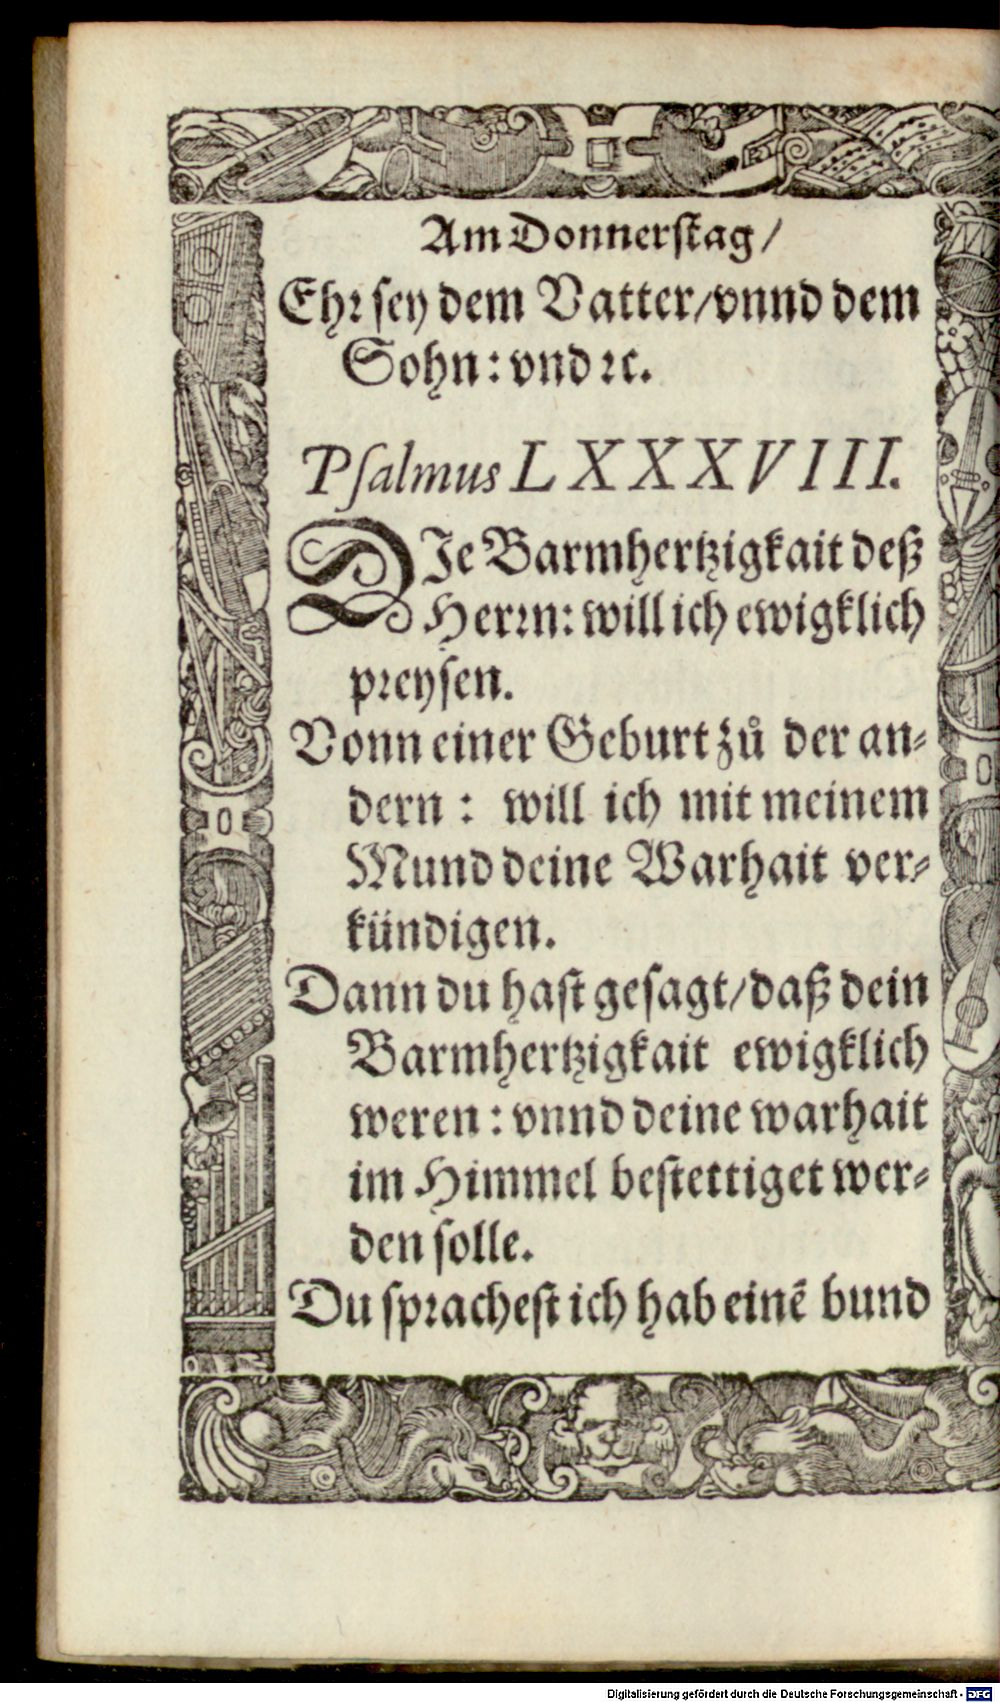 Am Donnerstag/
Ehr sey dem Vatter/vnnd dem
Sohn: vnd ꝛc.
Psalmus LXXXVIII.
DIe Barmhertzigkait deß
Herrn: will ich ewigklich
preysen.
Vonn einer Geburt zů der an⸗
dern : will ich mit meinem
Mund deine Warhait ver⸗
kündigen.
Dann du hast gesagt/daß dein
Barmhertzigkait ewigklich
weren : vnnd deine warhait
im Himmel bestettiget wer⸗
den solle.
Du sprachest ich hab einē bund
Digitalisierung gefördert durch die Deutsche Forschungsgemeinschaft - DFG